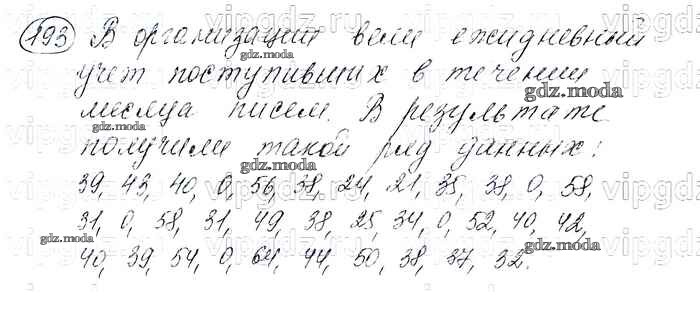 193 В организации вели ежидневный
учет поступивших в течении
месяца писем. В результате
получили такой ряд данных:
39, 43, 40, 0, 56, 38, 24, 21, 35, 38, 0, 58,
31, 0, 58, 31, 49, 38, 25, 34, 0, 52, 40, 42,
40, 39, 54, 0, 64, 44, 50, 38, 37, 32.
vipgdz.ru
gdz.moda